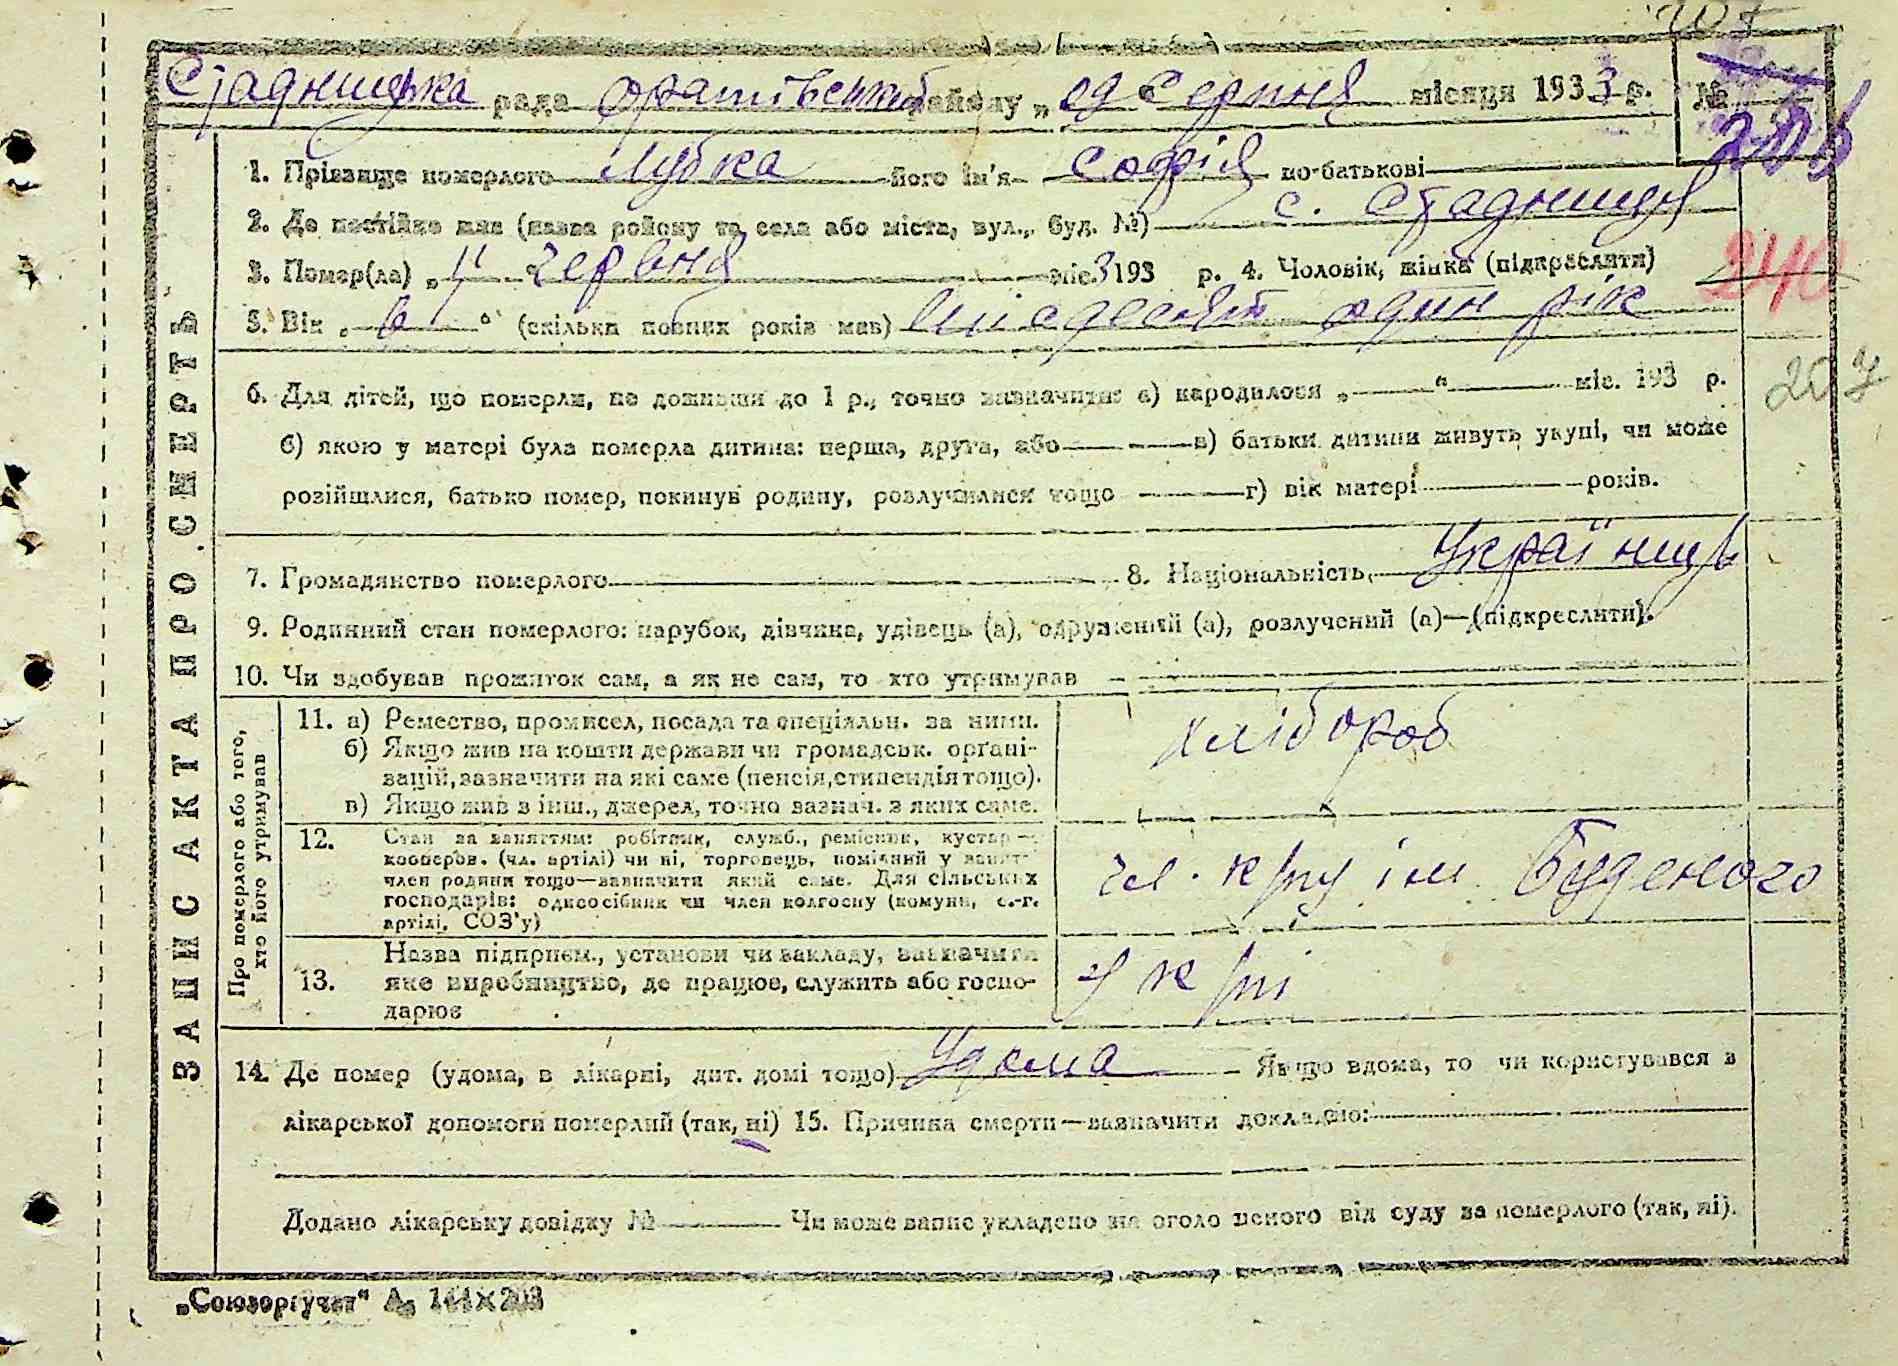 207
Стадницька рада Оратівський району „ 09 Серпня місяця 1933 р. №
206
1. Прізвище померлого Лубка його ім'я Софія по-батькові
2. Де постійно жив (назва району та села або міста, вул., буд. №) с. Стадниця
240
3. Помер(ла) „ 11 " червня міс 3 193 р. 4. Чоловік, жінка (підкреслити)
5. Вік „ 6 " (скільки повних років мав) Шісдесят один рік
207
6. Для дітей, що померли, не доживши до 1 р., точно зазначити: а) народилося „ " міс. 193 р.
б) якою у матері була померла дитина: перша, друга, або в) батьки дитини живуть укупі, чи може
розійшлися, батько помер, покинув родину, розлучилися тощо г) вік матері років.
7. Громадянство померлого 8. Національність Українць
9. Родинний стан померлого: парубок, дівчина, удівець (а), одружений (а), розлучений (а)—(підкреслити).
10. Чи здобував прожиток сам, а як не сам, то хто утримував
ЗАПИС АКТА ПРО СМЕРТЬ
Про померлого або того, хто його утримував
11. а) Ремество, промисел, посада та спеціяльн. за ними.
б) Якщо жив на кошти держави чи громадськ. органі-
зацій, зазначити на які саме (пенсія, стипендія тощо).
в) Якщо жив з інш., джерел, точно зазнач. з яких саме.
хлібороб
12. Стан за заняттям: робітник, служб., ремісник, кустар—
кооперов. (чл. артілі) чи ні, торговець, помічний у занят-
член родини тощо—зазначити який саме. Для сільських
господарів: одноосібник чи член колгоспу (комуни, с.-г.
артілі, СОЗ'у)
чл. к/гпу ім Буденого
13. Назва підприєм., установи чи закладу, зазначити
яке виробництво, де працює, служить або госпо-
дарює
У к/гпі
14. Де помер (удома, в лікарні, дит. домі тощо) Удома Якщо вдома, то чи користувався з
лікарської допомоги померлий (так, ні) 15. Причина смерти—зазначити докладно:
Додано лікарську довідку № Чи може запис укладено на оголошеного від суду за померлого (так, ні).
„Союзоргучет"